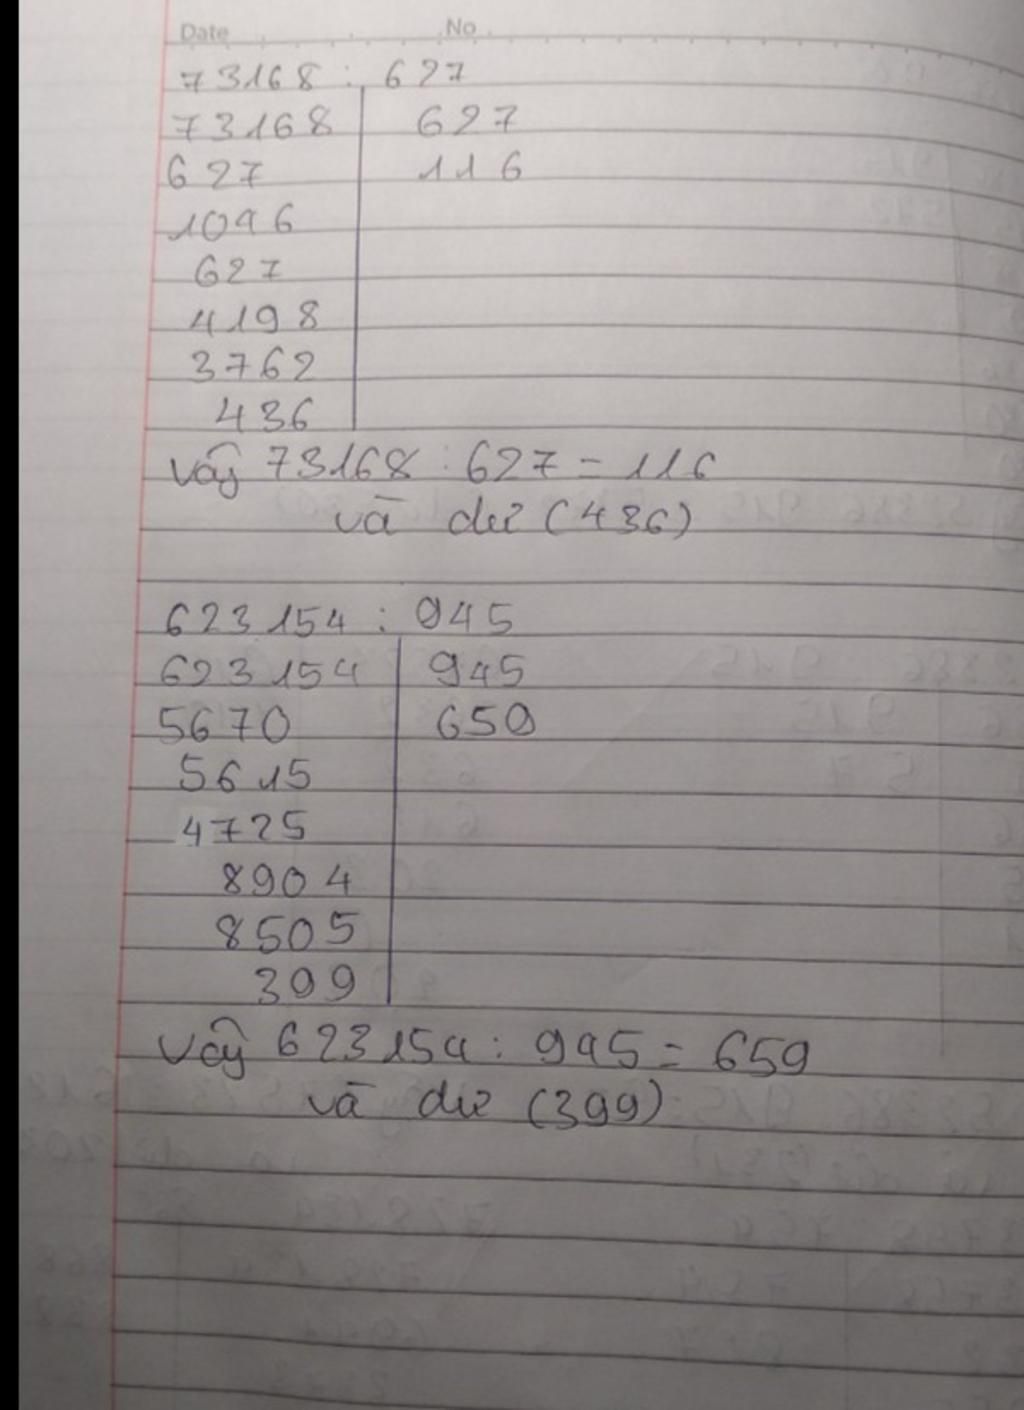 Date No
73168 : 627
73168 627
627 116
1046
627
4198
3762
436
vậy 73168 : 627 = 116
và dư (436)
623154 : 945
623154 945
5670 659
5615
4725
8904
8505
399
vậy 623154 : 945 = 659
và dư (399)